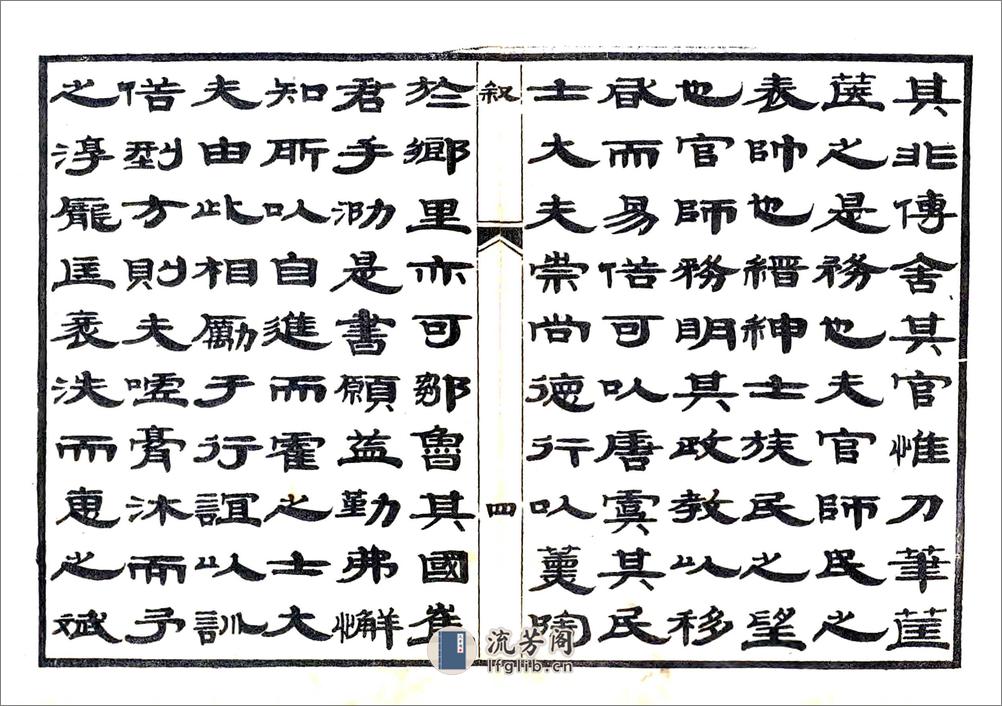 其非傳舍其官惟刀筆筐
篋之是務也夫官師民之
表帥也縉紳士族民之望
也官師務明其政教以移
風而易俗可以唐虞其民
士大夫崇尚德行以薰陶
叙
四
於鄉里亦可鄒魯其國崔
君手泐是書願益勤弗懈
知所以自進而霍之士大
夫由此相勵于行誼以訓
俗型方則夫噓膏沐而予
之淳龐匡衺泆而更之斌
流芳阁
lfglib.cn